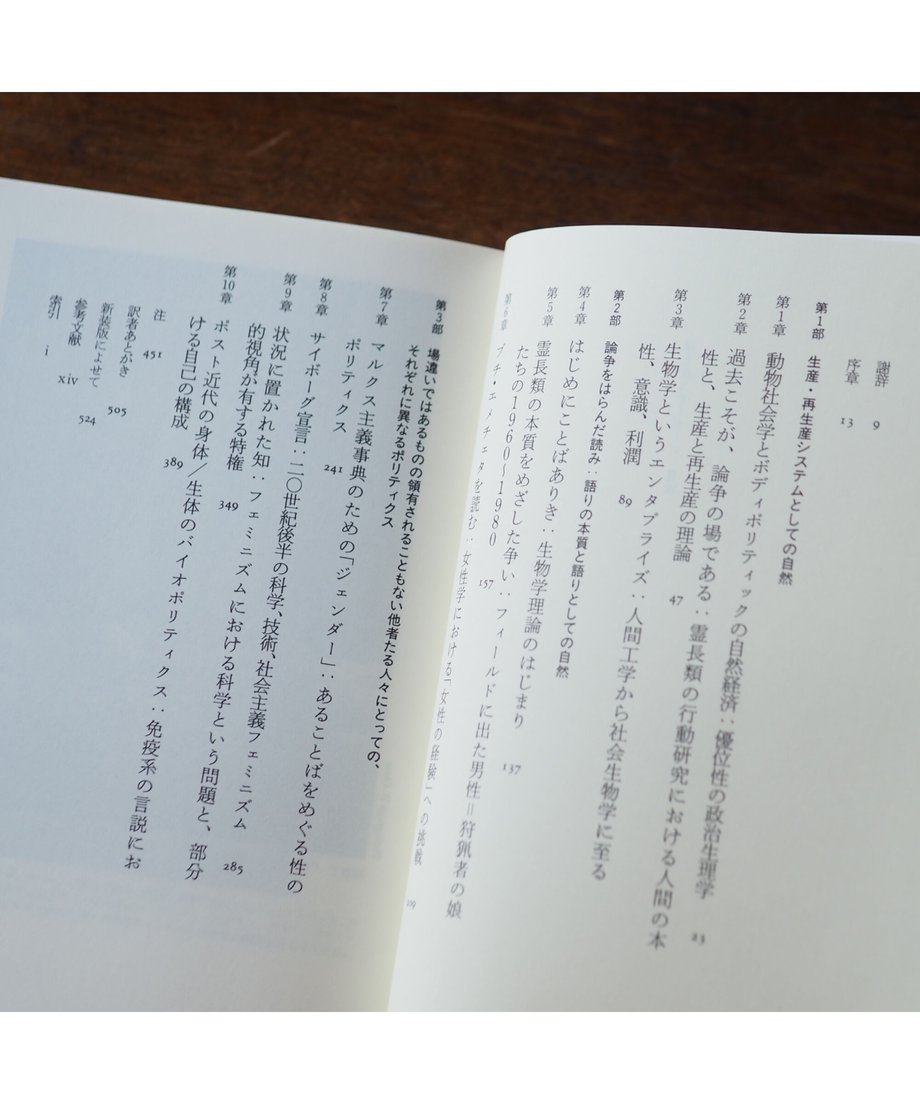 謝辞 9
序章 13
第1部 生産・再生産システムとしての自然
第1章 動物社会学とボディポリティックの自然経済：優位性の政治生理学 23
第2章 過去こそが、論争の場である：霊長類の行動研究における人間の本
性と、生産と再生産の理論 47
第3章 生物学というエンタプライズ：人間工学から社会生物学に至る
性、意識、利潤 89
第2部 論争をはらんだ読み：語りの本質と語りとしての自然
第4章 はじめにことばありき：生物学理論のはじまり 137
第5章 霊長類の本質をめざした争い：フィールドに出た男性＝狩猟者の娘
たちの1960〜1980 157
第6章 ブチ・エメチェタを読む：女性学における「女性の経験」への挑戦
第3部 場違いではあるものの領有されることもない他者たる人々にとっての、
それぞれに異なるポリティクス
第7章 マルクス主義事典のための「ジェンダー」：あることばをめぐる性の
ポリティクス 241
第8章 サイボーグ宣言：二〇世紀後半の科学、技術、社会主義フェミニズム 285
第9章 状況に置かれた知：フェミニズムにおける科学という問題と、部分
的視角が有する特権 349
第10章 ポスト近代の身体／生体のバイオポリティクス：免疫系の言説にお
ける自己の構成 389
注 451
訳者あとがき 505
新装版によせて 524
参考文献 xiv
索引 i